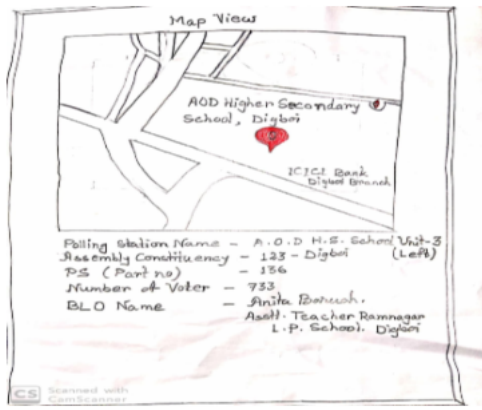 Map View
AOD Higher Secondary
School, Digboi
ICICI Bank
Digboi Branch
Polling Station Name - A.O.D H.S. School Unit-3
(Left)
Assembly Constituency - 123 - Digboi
PS (Part no) - 136
Number of Voter - 733
BLO Name - Anita Boruah.
Asstt. Teacher Ramnagar
L.P. School. Digboi
CS Scanned with
CamScanner